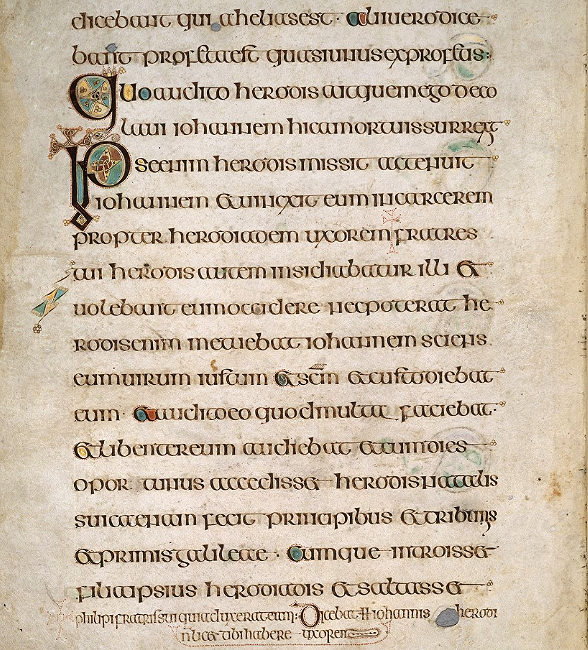 dicebant quia heliasest · aliiuerodice
bant profetaest quasiunusexprofetis:
Quoaudito herodis aitquemegodeco
laui iohannem hicamortuissurrexit
Ipseenim herodis missit actenuit
iohannem &uincxit eum incarcerem
propter herodiadem uxorem fratres
sui herodis autem insidiabatur illi &
uolebant eumoccidere necpoterat he
rodisenim metuebat iohannem sciens
eumuirum iustum &scm̄ &custodiebat
eum · &auditoeo quodmulta faciebat·
&libentereum audiebat &cumdies
opor tunus accediss& herodis natalis
suicaenam fecit principibus &tribunis
&primisgalileae · Cumque introiss&
filiaipsius herodiadis &saltass&
philipifratrissuiquiaduxerateam: Dicebat iohannis herodi
nlic& tibihabere uxorem